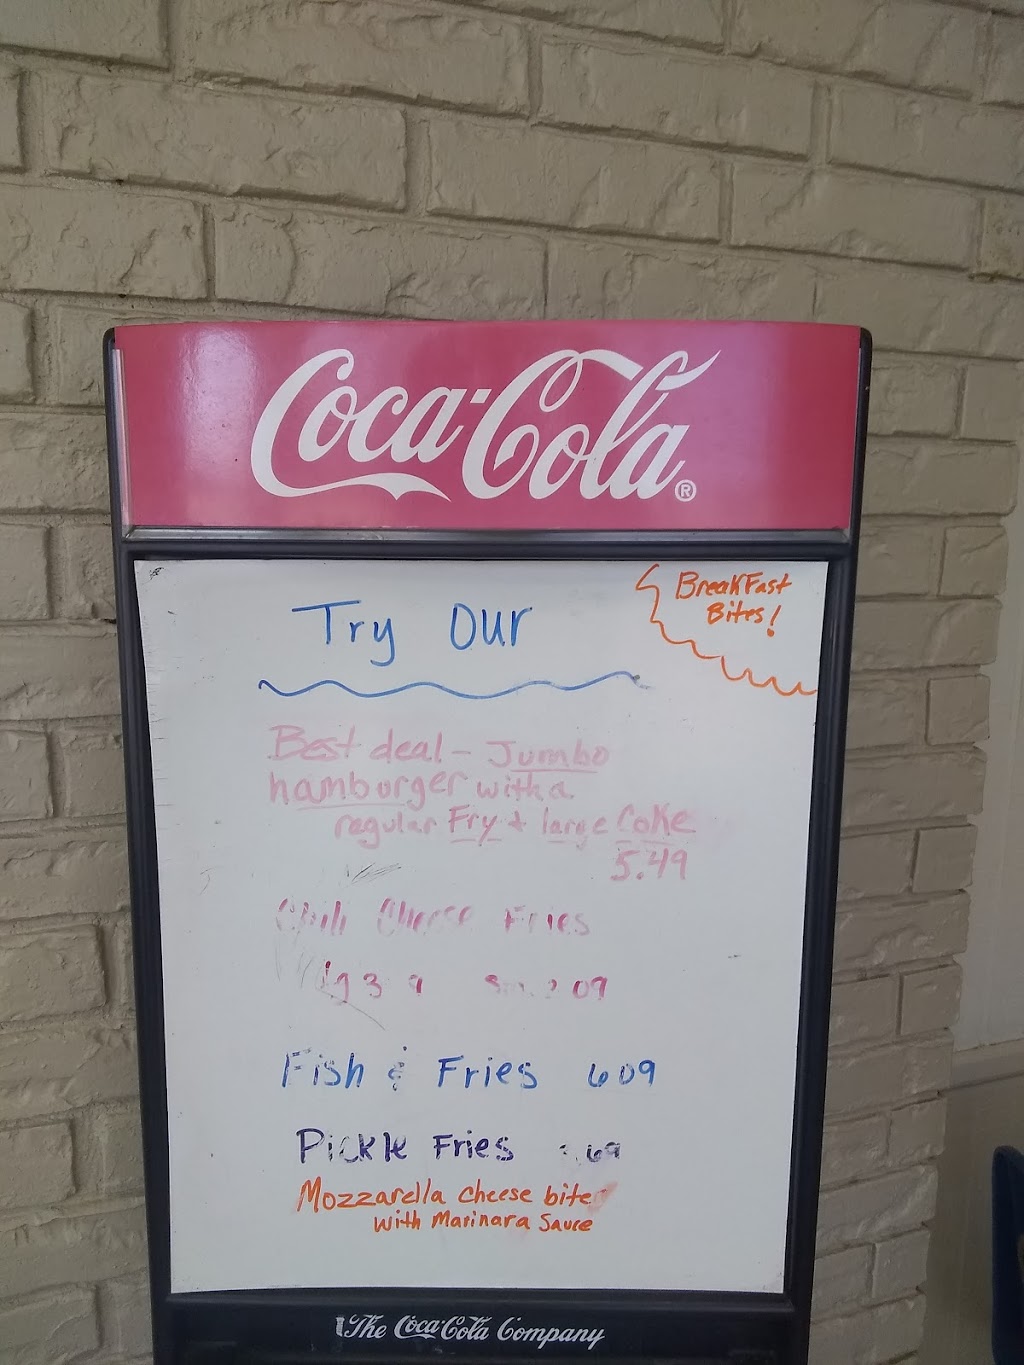 Coca-Cola®
BreakFast
Bites!
Try Our
Best deal - Jumbo
hamburger with a
regular Fry + large Coke
5.49
Chili Cheese Fries
Fish & Fries 609
Pickle Fries
Mozzarella cheese bite
with Marinara Sauce
The Coca-Cola Company